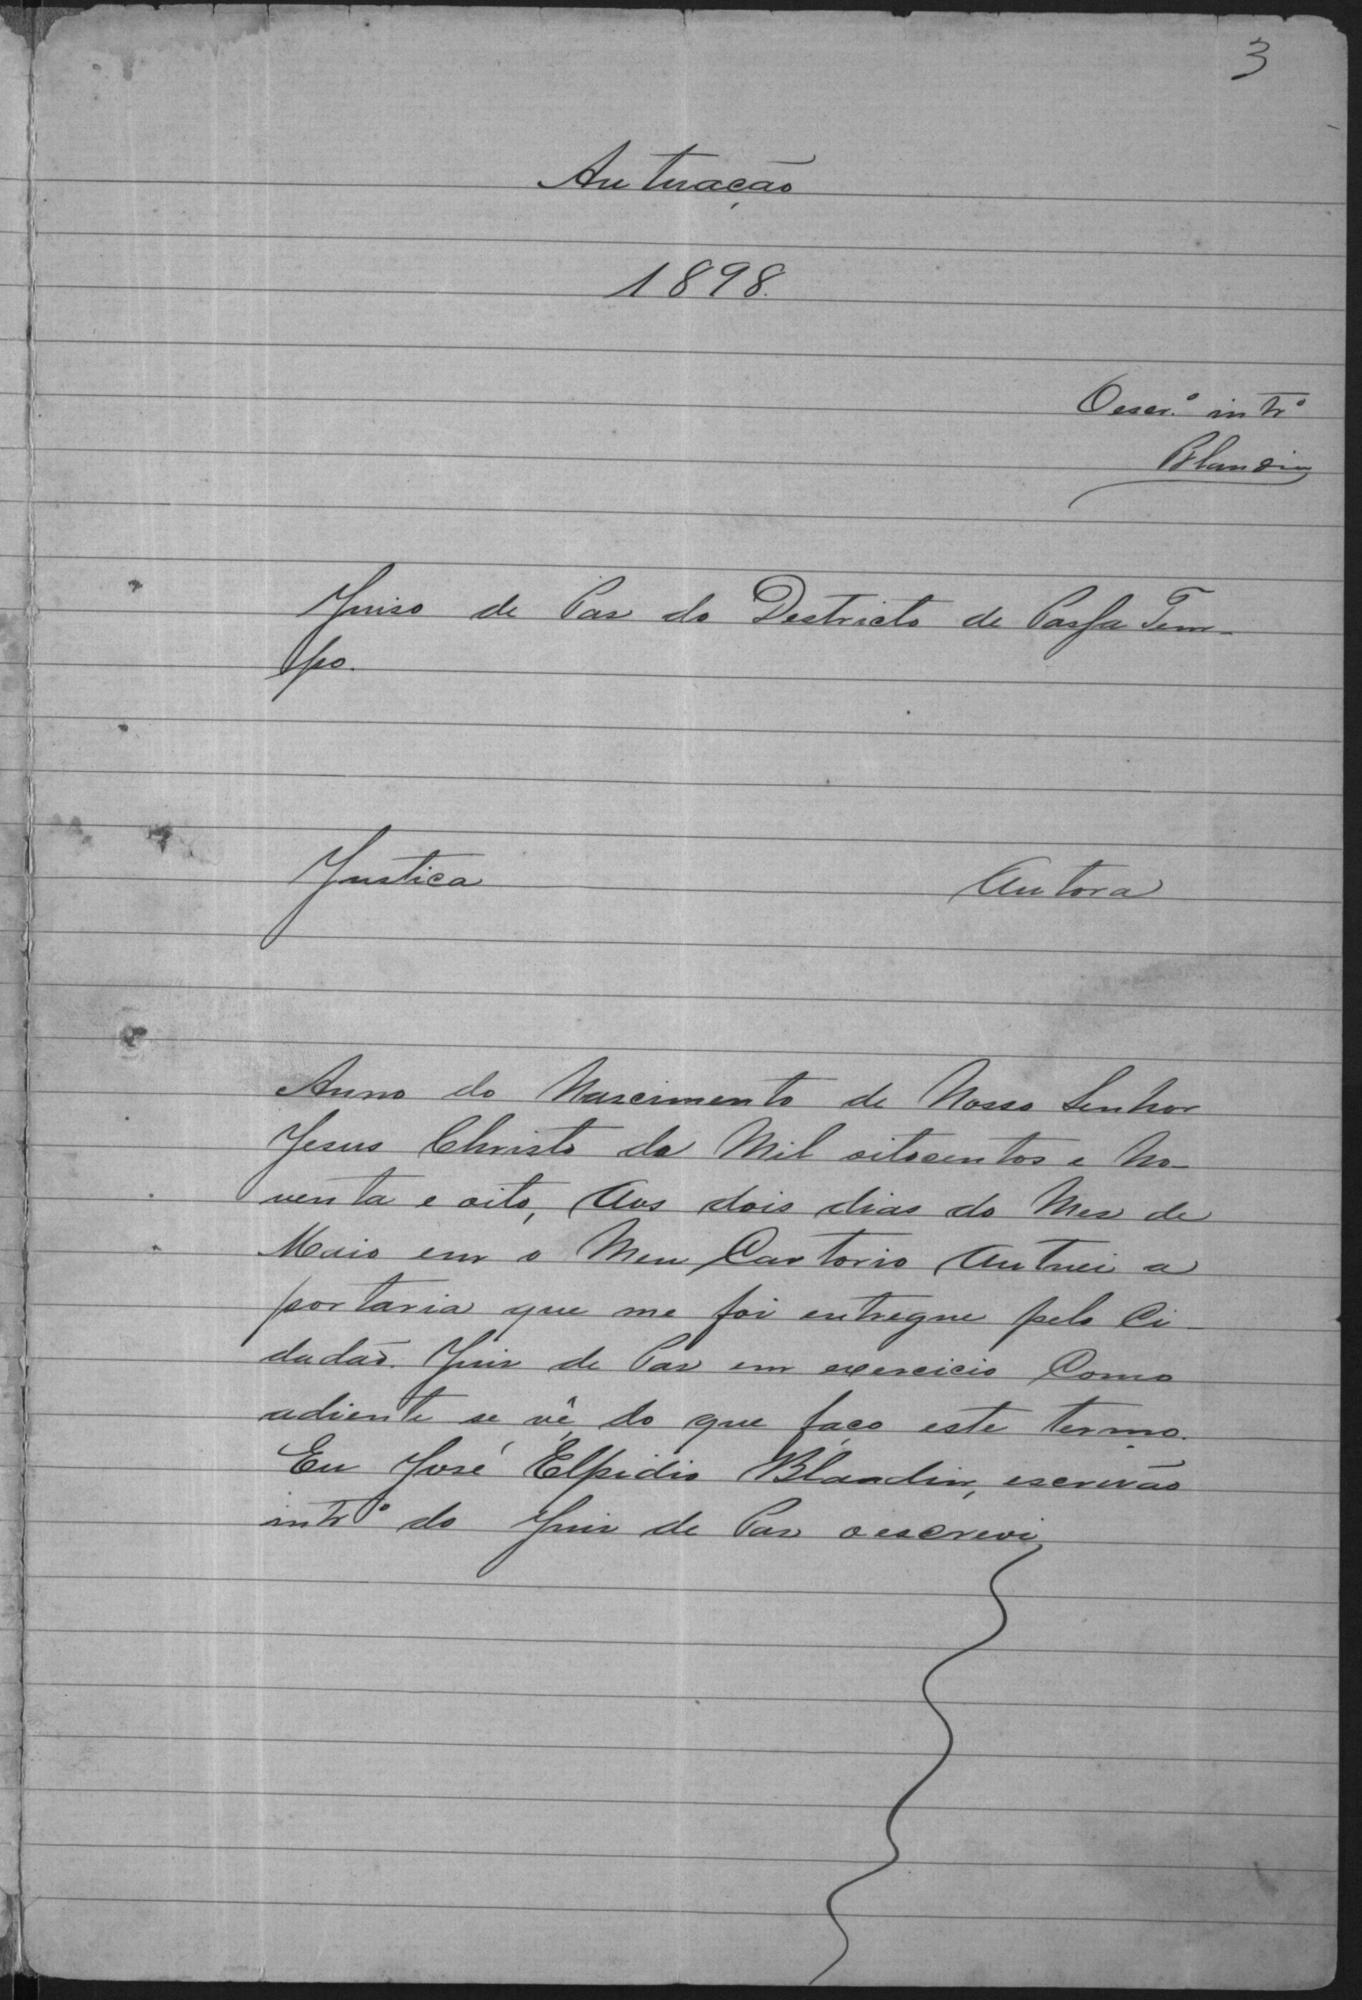 3
Autuação
1898.
O escr.º intrº
Blandin
Juiso de Paz do Destricto de Passa Tem-
po.
Justiça Autora
Anno do Nascimento de Nosso Senhor
Jesus Christo de Mil oitocentos e No-
venta e oito, Aos dois dias do Mez de
Maio em o Meu Cartorio Autuei a
portaria que me foi entregue pelo Ci-
dadão Juiz de Paz em exercicio Como
adiente se vê do que faço este termo.
Eu José Elpidio Blandin, escrivão
intrº do Juiz de Paz o escrevi